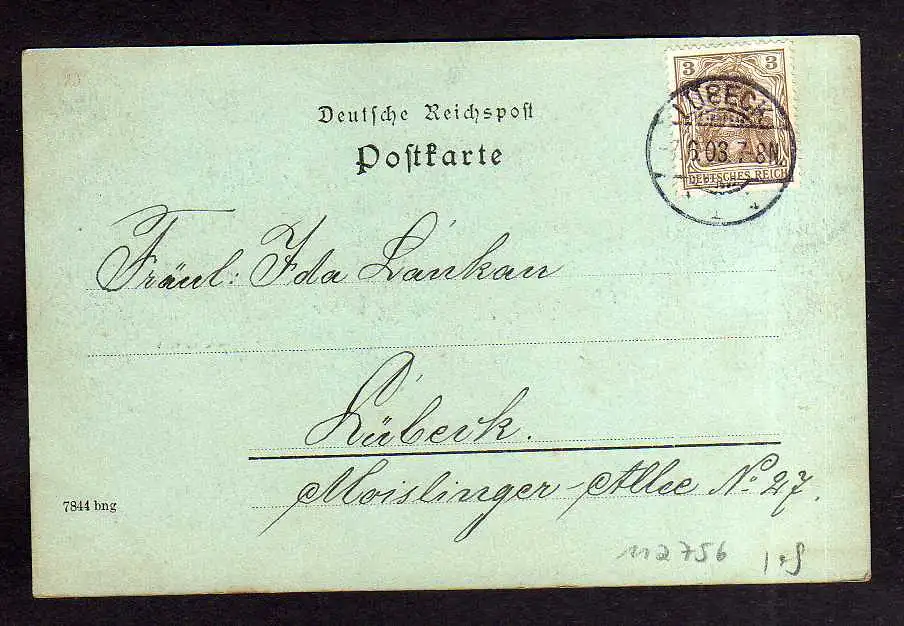 Deutsche Reichspost
Postkarte
3 3
DEUTSCHES REICH
LÜBECK
6.03.7-8N.
1
Fräul: Ida Lankau
Lübeck.
Moislinger-Allee No 27.
7844 bng
112756